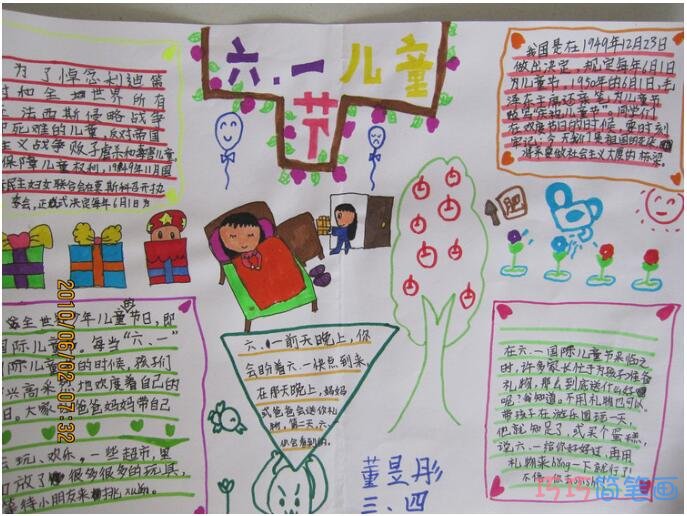 六.一儿童
节
为了悼念利迪茜
和全世界所有
法西斯侵略战争
死难的儿童,反对帝国
主义战争贩子虐杀和毒害儿童,
保障儿童权利,1949年11月国
民主妇女联合会在莫斯科召开执
委会,正式决定每年6月1日为
我国是在1949年12月23日
做出决定,规定每年6月1日
为儿童节,1950年的6月1日,毛
泽东主席还亲笔为儿童节
在欢度节日的时候,要时刻
牢记:今天我们是祖国的花朵
将来要做社会主义大厦的栋梁.
肥
全世界少年儿童节日,即
国际儿童节.每当“六、一”
际儿童节的时候,孩子们
兴高采烈地欢度着自己的
日。大家和爸爸妈妈带自己
玩、欢乐。一些超市,里
放了很多很多的玩具,
等待小朋友来挑xuǎn.
六、一前天晚上,你
会盼着六.一快点到来,
在那天晚上,妈妈
或爸爸会送你礼
物,第二天,六、一
你会看到的.
在六.一国际儿童节来临之
时,许多家长忙于为孩子准备
礼物,那么到底送什么好
呢?我知道,不用礼物也可以.
带孩子在游乐园玩一天,
他就知足了,或买个蛋糕,
说六.一给你好好过,再用
礼物来hǒng一下就行了!
董昱彤
三、四
2010/06/02 07:32
巧巧简笔画